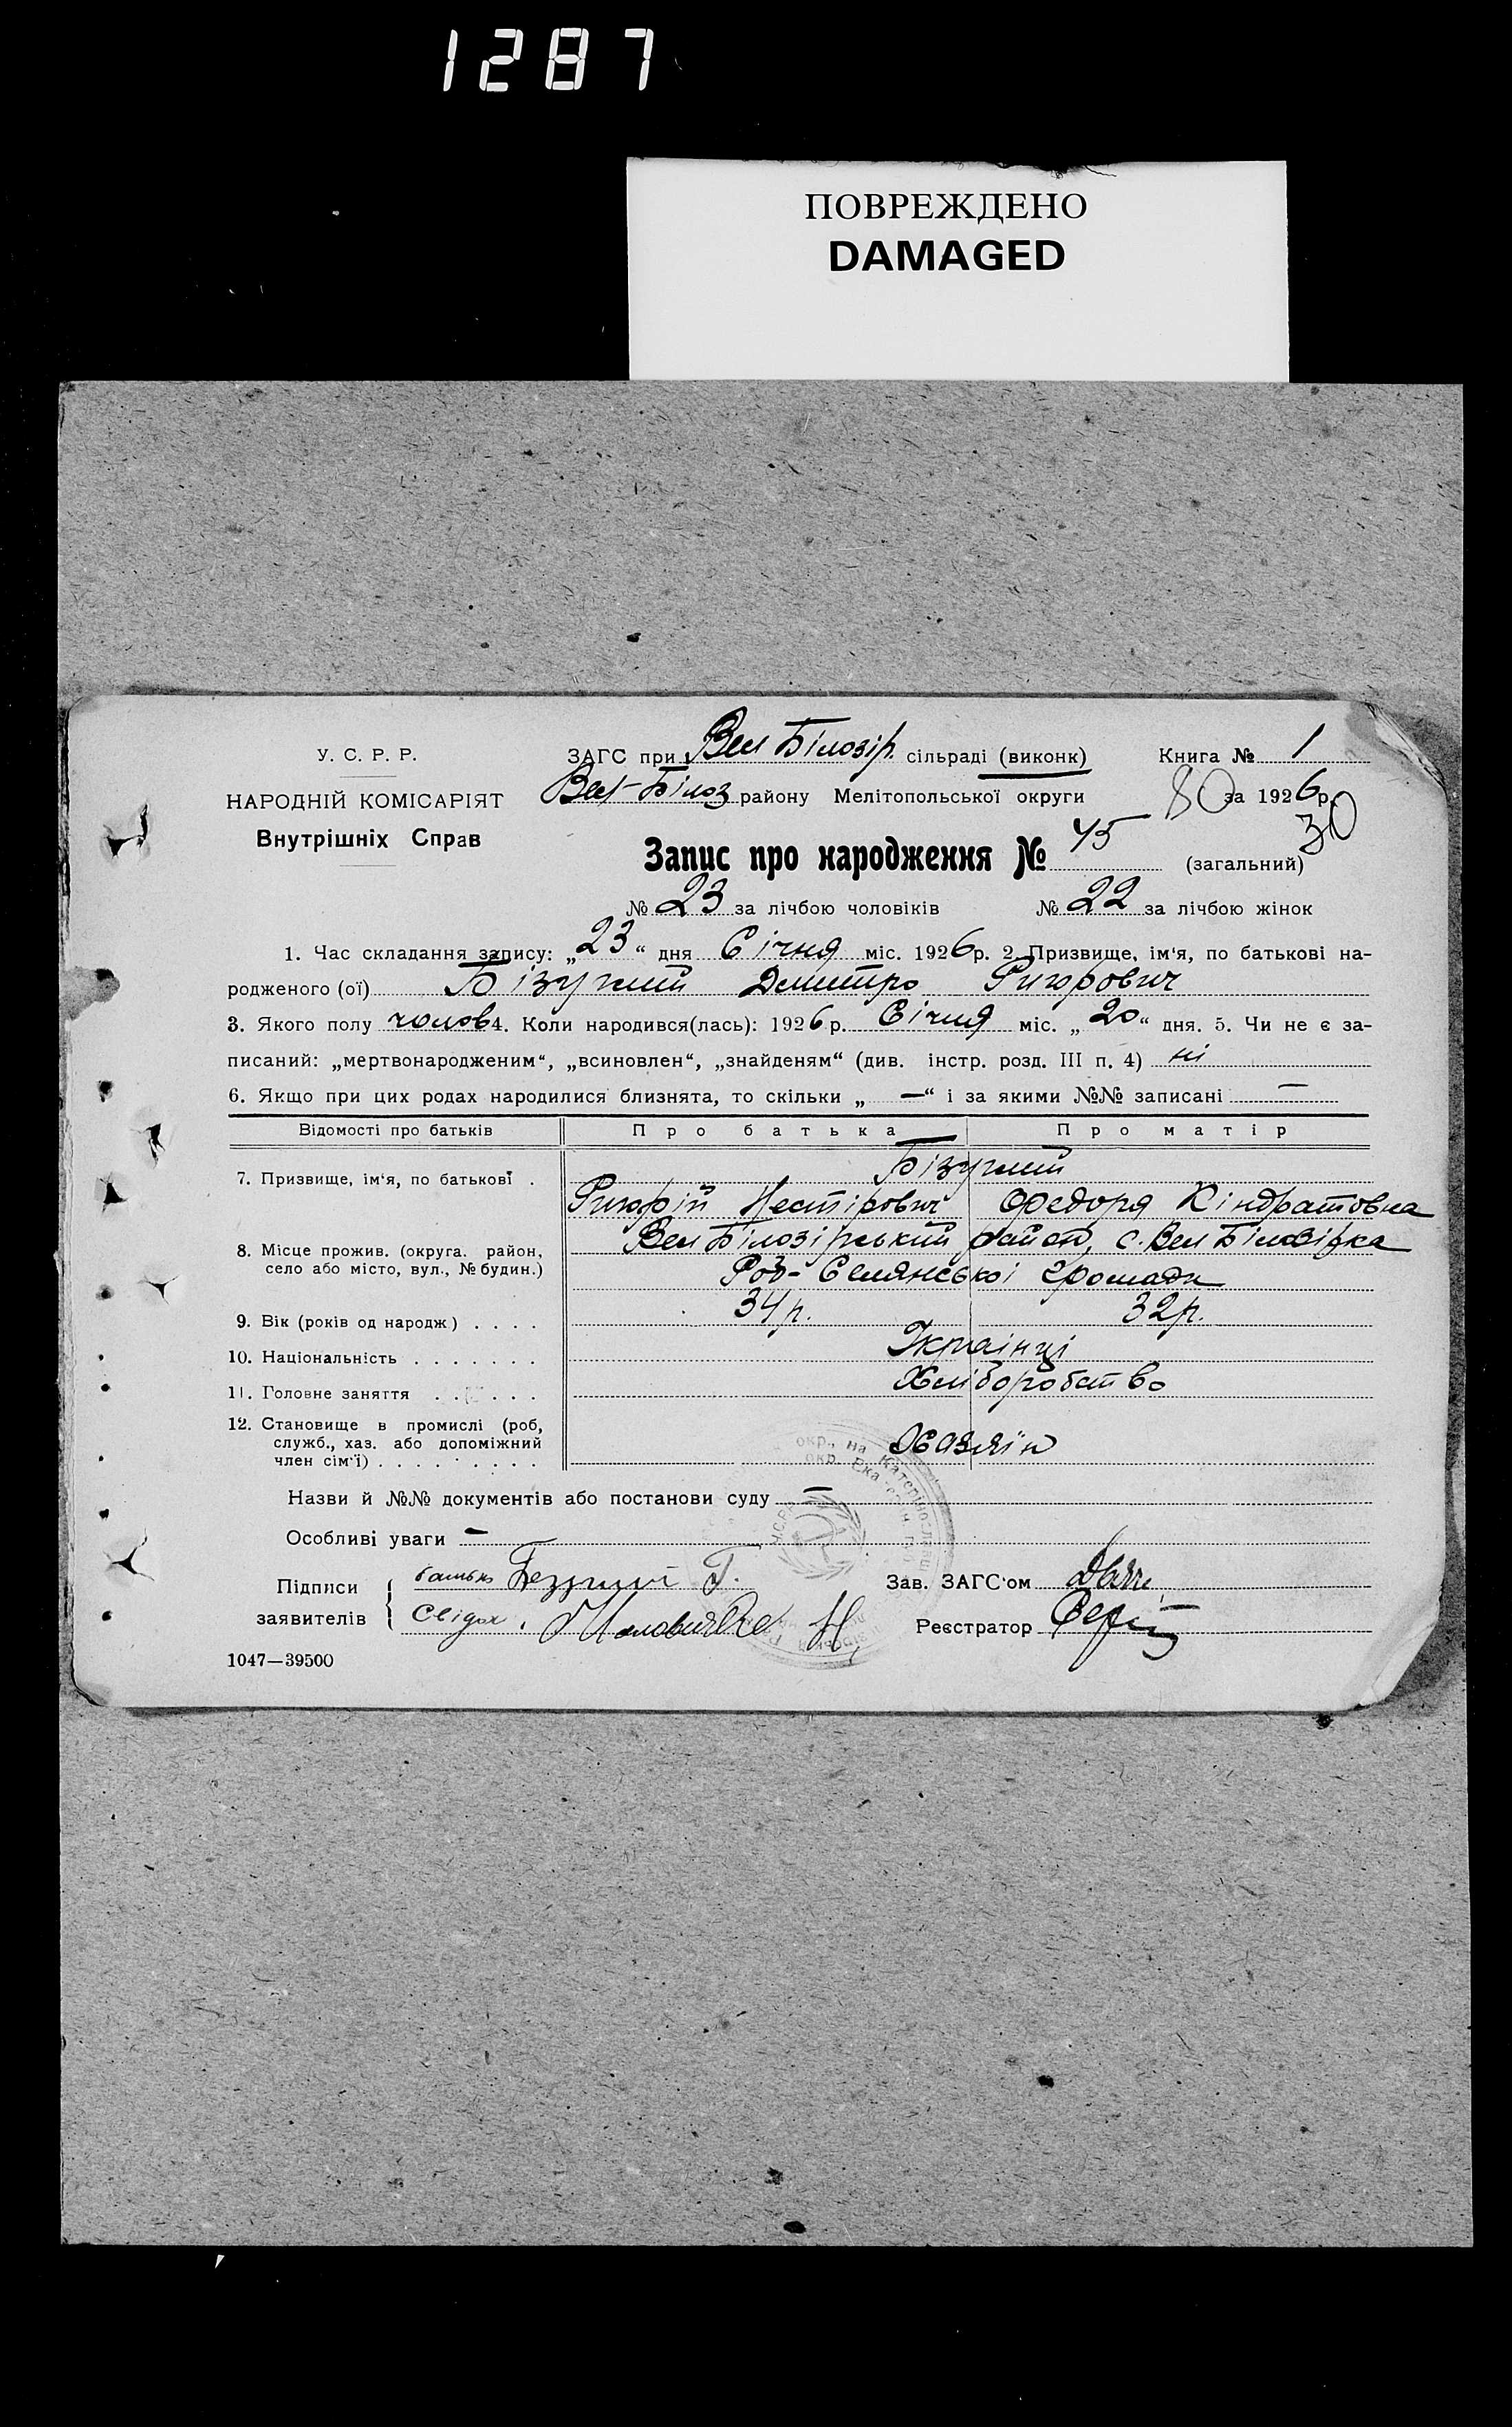 1287
ПОВРЕЖДЕНО
DAMAGED
У. С. Р. Р.
НАРОДНІЙ КОМІСАРІЯТ
Внутрішніх Справ
ЗАГС при Вел Білозір. сільраді (виконк) Книга № 1
Вел-Білоз району Мелітопольської округи 80 за 1926 р.
30
Запис про народження № 45 (загальний)
№ 23 за лічбою чоловіків № 22 за лічбою жінок
1. Час складання запису: „23“ дня Січня міс. 1926 р. 2. Призвище, ім‘я, по батькові на-
родженого (ої) Бізуглий Дмитро Григорович
3. Якого полу чолов 4. Коли народився(лась): 1926 р. Січня міс. „20“ дня. 5. Чи не є за-
писаний: „мертвонародженим“, „всиновлен“, „знайденям“ (див. інстр. розд. III п. 4) ні
6. Якщо при цих родах народилися близнята, то скільки „—“ і за якими №№ записані —
Відомості про батьків Про батька Про матір
7. Призвище, ім‘я, по батькові . Бізуглий
Григорій Нестірович Федоря Кіндратовна
8. Місце прожив. (округа. район, село або місто, вул., № будин.) Вел Білозірський район, с. Вел Білозірка
Роз- Селянської громади
9. Вік (років од народж) . . . . 34 р. 32 р.
10. Національність . . . . . . . Українці
11. Головне заняття . . . . . . Хліборобство
12. Становище в промислі (роб, служб., хаз. або допоміжний член сім‘ї) . . . . . . . . . Хазяїн
Назви й №№ документів або постанови суду —
Особливі уваги —
Підписи заявителів { батько Безуглий Г.
Свідок.
Зав. ЗАГС‘ом
Реєстратор
1047—39500